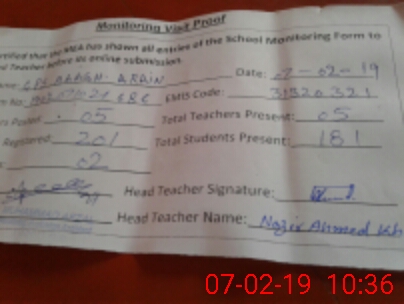 Monitoring Visit Proof
rtified that the MEA has shown all entries of the School Monitoring Form to
d Teacher before its online submission.
Date: 07-02-19
EMIS Code: 31320321
rs Posted 05 Total Teachers Present: 05
Registered: 201 Total Students Present: 181
02
Head Teacher Signature:
Head Teacher Name: Nazir Ahmed
07-02-19 10:36